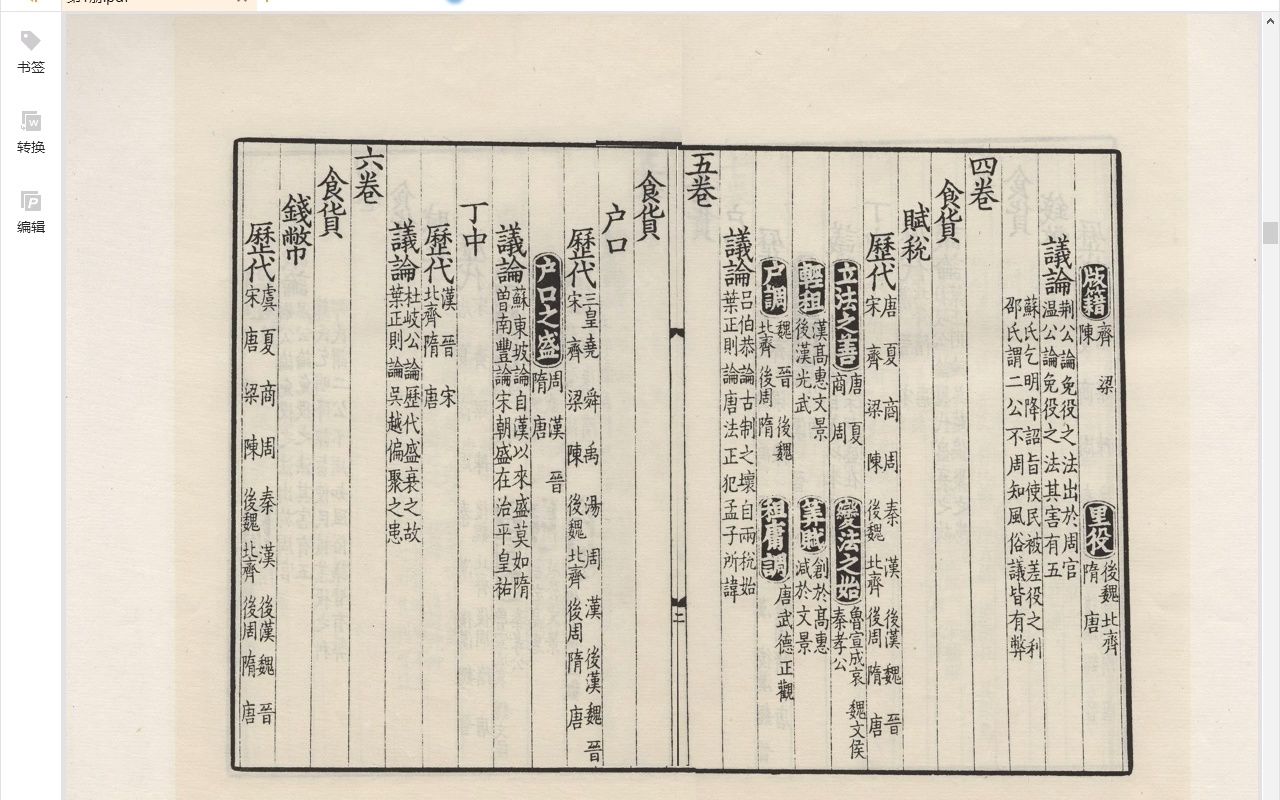 书签
转换
编辑
版籍 齊 梁 陳 里役 後魏 北齊 隋 唐
議論 荆公論免役之法出於周官 温公論免役之法其害有五
蘇氏乞明降詔旨使民被差役之利 邵氏謂二公不周知風俗議皆有弊
四卷
食貨
賦稅
歷代 唐 夏 商 周 秦 漢 後漢 魏 晉 宋 齊 梁 陳 後魏 北齊 後周 隋 唐
立法之善 唐 夏 商 周 變法之始 魯宣成哀 魏文侯 秦孝公
輕租 漢高惠文景 後漢光武 算賦 創於高惠 減於文景
户調 魏 晉 後魏 北齊 後周 隋 租庸調 唐武德正觀
議論 吕伯恭論古制之壞自兩稅始 葉正則論唐法正犯孟子所諱
五卷
二
食貨
户口
歷代 三皇 堯 舜 禹 湯 周 漢 後漢 魏 晉 宋 齊 梁 陳 後魏 北齊 後周 隋 唐
户口之盛 周 漢 晉 隋 唐
議論 蘇東坡論自漢以來盛莫如隋 曾南豐論宋朝盛在治平皇祐
丁中
歷代 漢 晉 宋 北齊 隋 唐
議論 杜岐公論歷代盛衰之故 葉正則論吴越偏聚之患
六卷
食貨
錢幣
歷代 虞 夏 商 周 秦 漢 後漢 魏 晉 宋 唐 梁 陳 後魏 北齊 後周 隋 唐